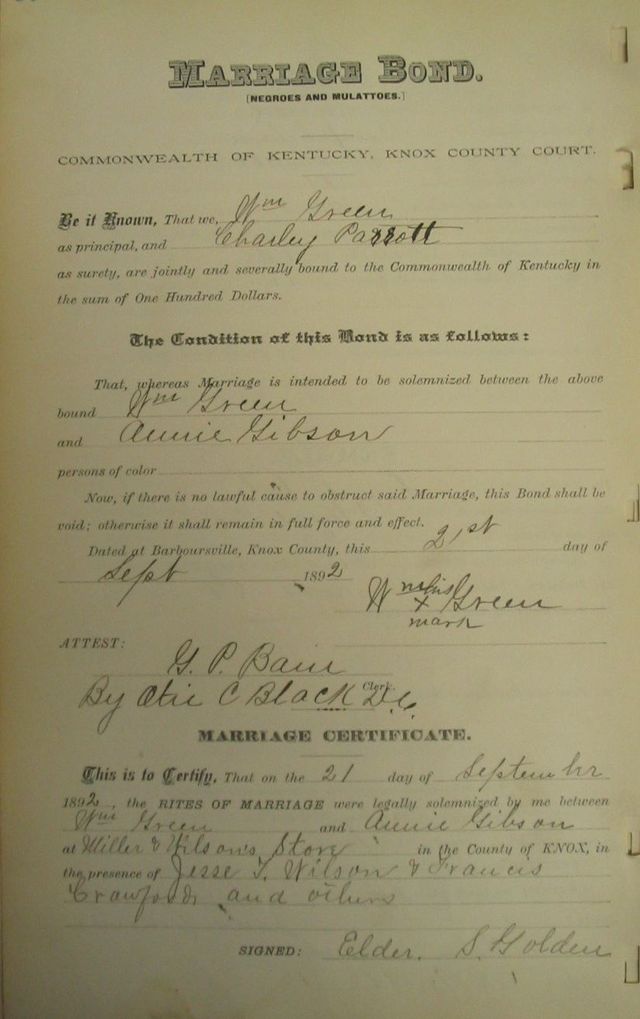 MARRIAGE BOND.
[NEGROES AND MULATTOES.]
COMMONWEALTH OF KENTUCKY, KNOX COUNTY COURT.
Be it Known, That we, Wm Green
as principal, and Charley Parrott
as surety, are jointly and severally bound to the Commonwealth of Kentucky in
the sum of One Hundred Dollars.
The Condition of this Bond is as follows:
That, whereas Marriage is intended to be solemnized between the above
bound Wm Green
and Annie Gibson
persons of color
Now, if there is no lawful cause to obstruct said Marriage, this Bond shall be
void; otherwise it shall remain in full force and effect.
Dated at Barboursville, Knox County, this 21st day of
Sept 1892
Wm his x Green
mark
ATTEST:
G. P. Bain
By Otie C Black Clerk D.C.
MARRIAGE CERTIFICATE.
This is to Certify, That on the 21 day of Septembr
1892, the RITES OF MARRIAGE were legally solemnized by me between
Wm Green and Annie Gibson
at Miller & Wilson's Store in the County of KNOX, in
the presence of Jesse T. Wilson & Francis
Crawford and others
SIGNED: Elder. S. Golden